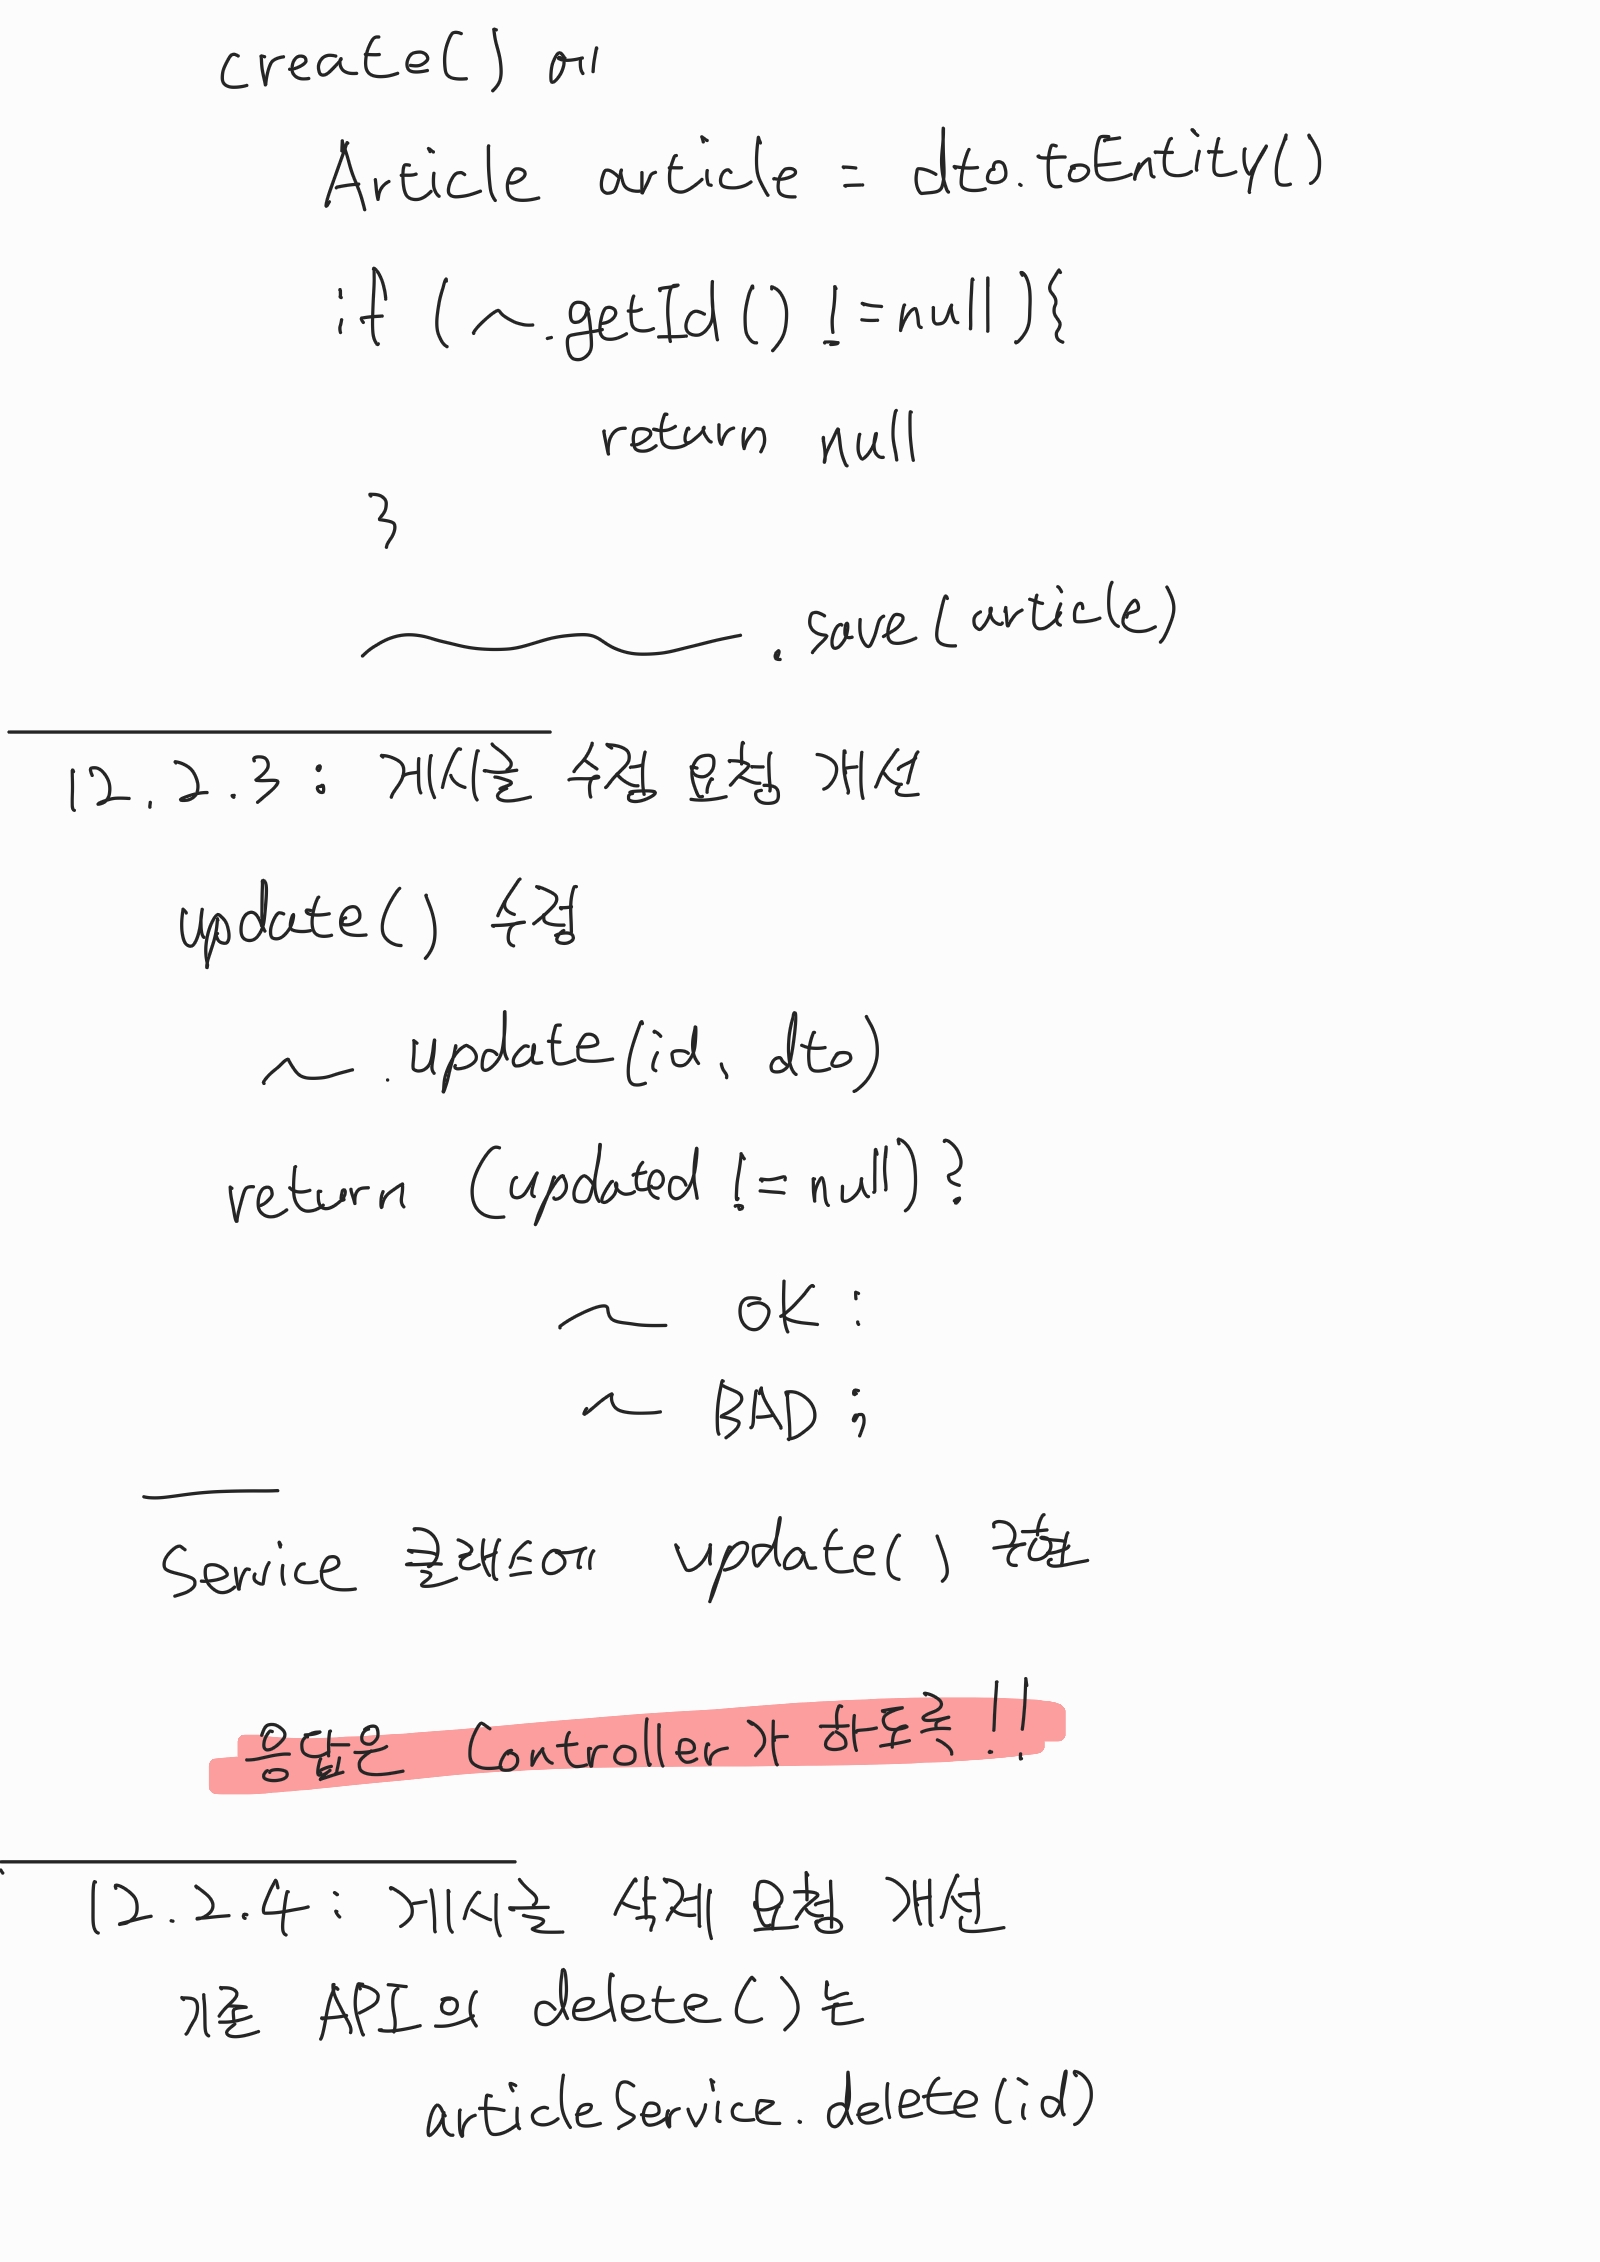 create() 에
Article article = dto.toEntity()
if (~.getId() != null){
return null
}
~.save(article)
12.2.3 : 게시글 수정 요청 개선
update() 수정
~.update(id, dto)
return (updated != null)?
~ OK :
~ BAD ;
Service 클래스에 update() 구현
응답은 Controller가 하도록!!
12.2.4 : 게시글 삭제 요청 개선
기존 API의 delete()는
articleService.delete(id)